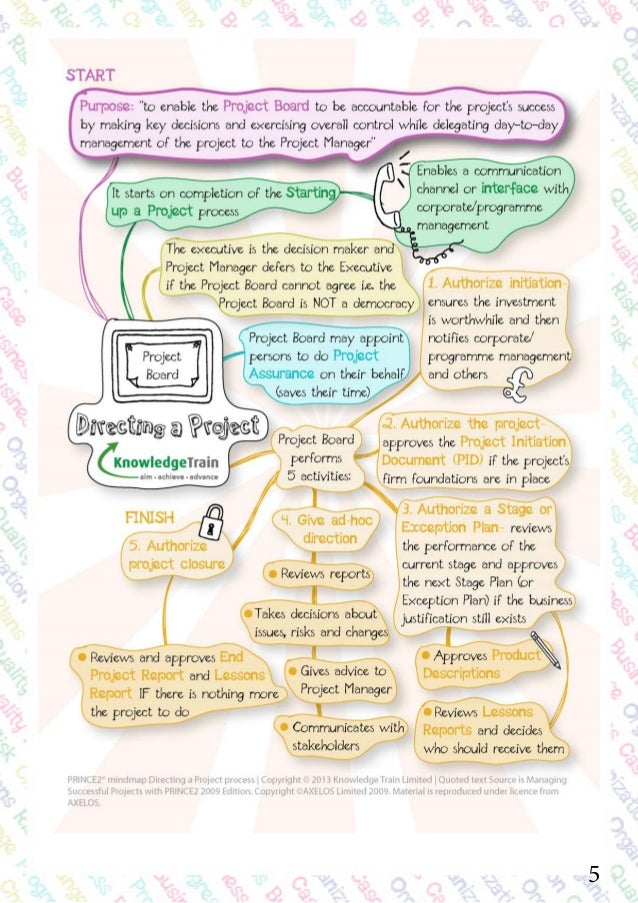 START
Purpose: "to enable the Project Board to be accountable for the project's success
by making key decisions and exercising overall control while delegating day-to-day
management of the project to the Project Manager"
It starts on completion of the Starting
up a Project process
Enables a communication
channel or interface with
corporate/programme
management
The executive is the decision maker and
Project Manager defers to the Executive
if the Project Board cannot agree i.e. the
Project Board is NOT a democracy
Project
Board
Project Board may appoint
persons to do Project
Assurance on their behalf
(saves their time)
1. Authorize initiation-
ensures the investment
is worthwhile and then
notifies corporate/
programme management
and others
£
Directing a Project
KnowledgeTrain
aim - achieve - advance
Project Board
performs
5 activities:
2. Authorize the project-
approves the Project Initiation
Document (PID) if the project's
firm foundations are in place
3. Authorize a Stage or
Exception Plan- reviews
the performance of the
current stage and approves
the next Stage Plan (or
Exception Plan) if the business
justification still exists
Approves Product
Descriptions
Reviews Lessons
Reports and decides
who should receive them
4. Give ad-hoc
direction
Reviews reports
Takes decisions about
issues, risks and changes
Gives advice to
Project Manager
Communicates with
stakeholders
FINISH
5. Authorize
project closure
Reviews and approves End
Project Report and Lessons
Report IF there is nothing more
the project to do
PRINCE2® mindmap Directing a Project process | Copyright © 2013 Knowledge Train Limited | Quoted text Source is Managing
Successful Projects with PRINCE2 2009 Edition. Copyright ©AXELOS Limited 2009. Material is reproduced under licence from
AXELOS.
5